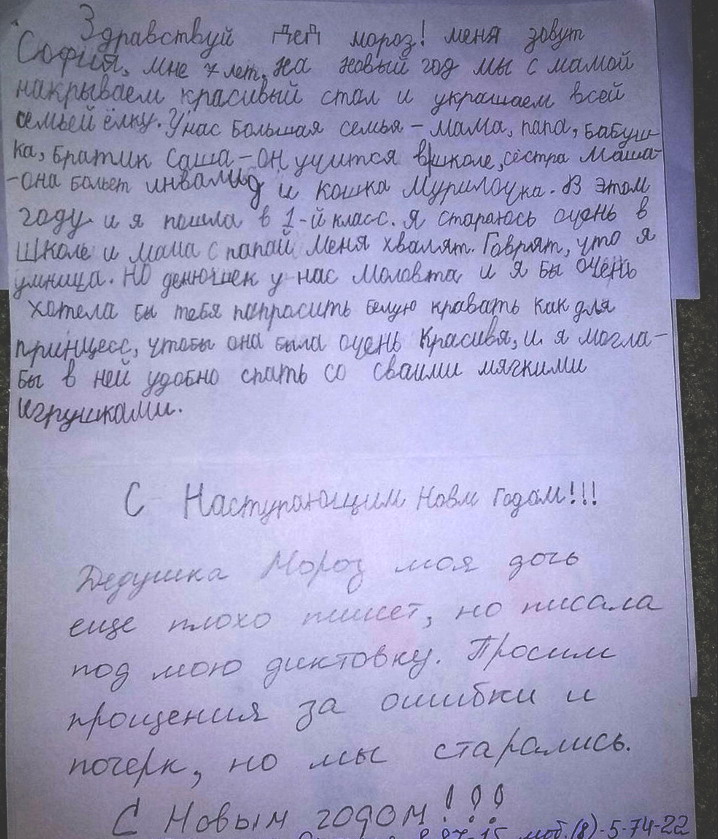 Здравствуй Дед мороз! меня зовут
София, мне 7 лет, на новый год мы с мамой
накрываем красивый стол и украшаем всей
семьей ёлку. У нас большая семья - мама, папа, бабуш-
ка, братик Саша - он учится в школе, сестра Маша -
- она больет инвалид и кошка Мурилочка. В этом
году и я пошла в 1-й класс. Я стараюсь очень в
школе и мама с папай меня хвалят. Говрят, что я
умница. Но денюшек у нас маловта и я бы очень
хотела бы тебя папрасить белую кравать как для
принцесс, чтобы она была очень красивя, и я могла-
бы в ней удобно спать со сваими мягкими
игрушками.
С Наступающим Новм Годом!!!
Дедушка Мороз моя дочь
еще плохо пишет, но писала
под мою диктовку. Просим
прощения за ошибки и
почерк, но мы старались.
С Новым годом!!!
8 07-15 моб.(8)-5-74-22